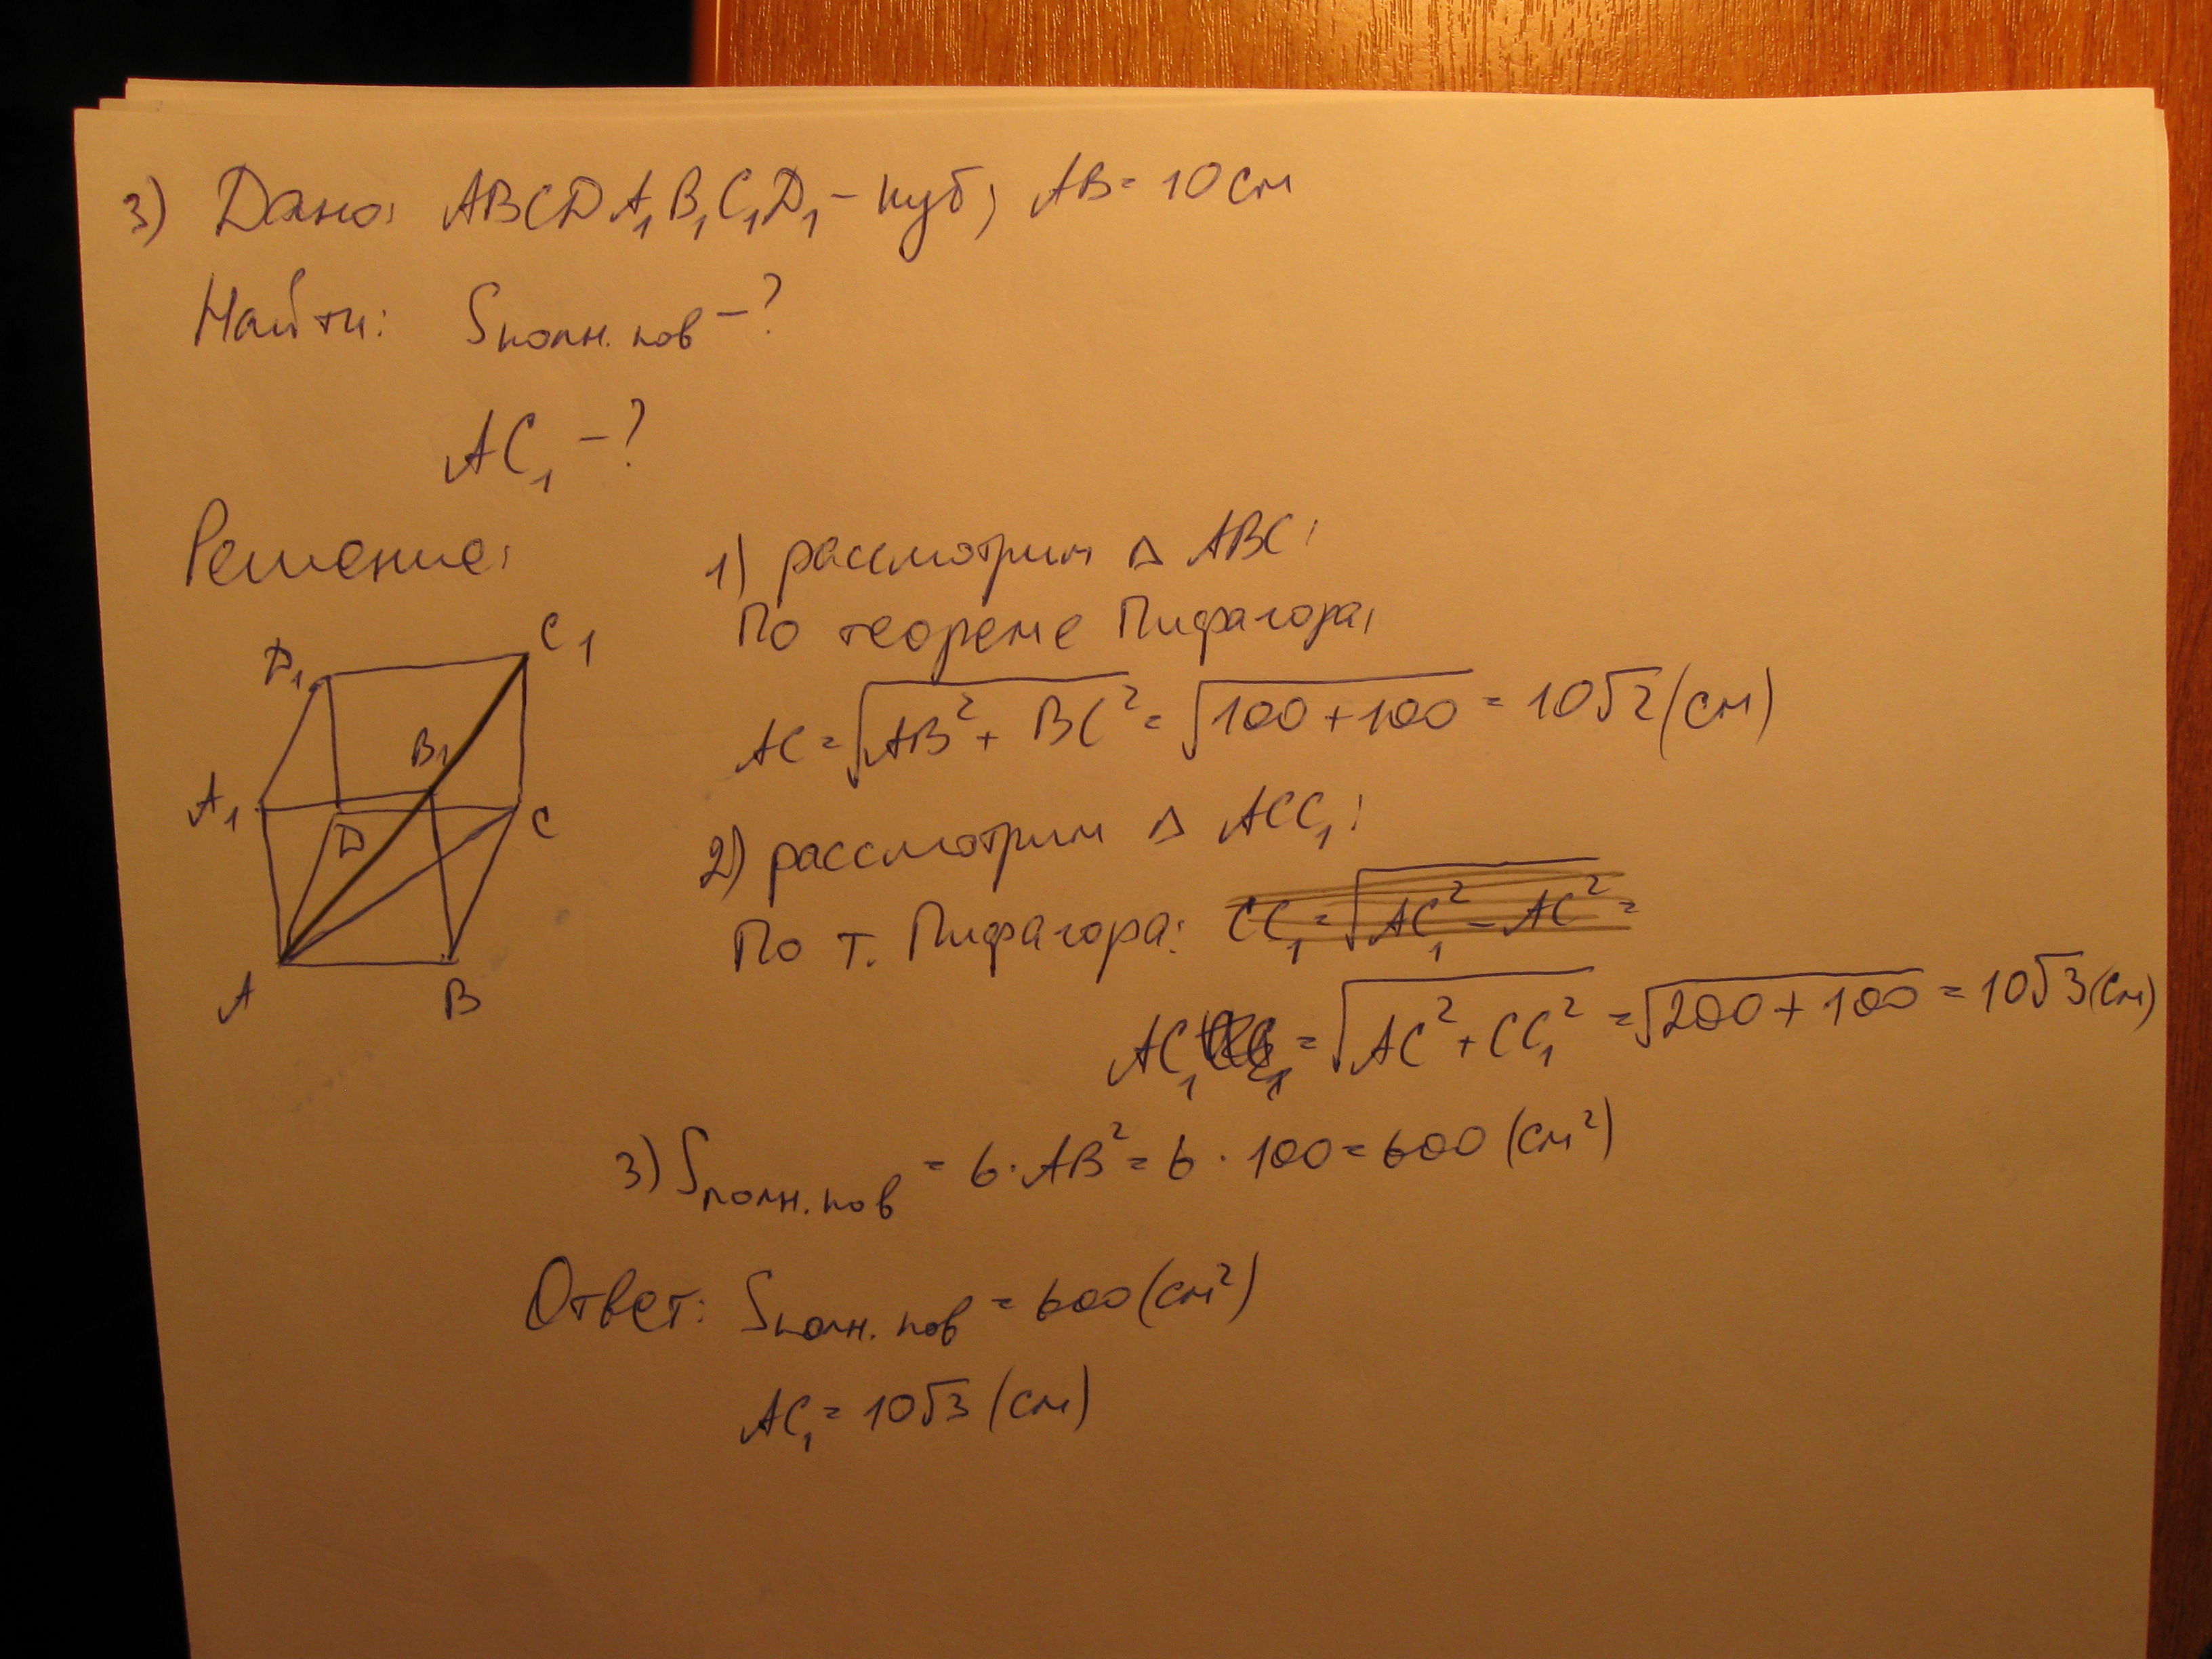 3) Дано: ABCDA₁B₁C₁D₁ – куб; AB = 10 см
Найти: Sполн. пов – ?
AC₁ – ?
Решение:
1) рассмотрим △ ABC:
По теореме Пифагора:
AC = √(AB² + BC²) = √(100 + 100) = 10√2 (см)
2) рассмотрим △ ACC₁:
По т. Пифагора: CC₁ = √(AC₁² – AC²) =
AC₁ = √(AC² + CC₁²) = √(200 + 100) = 10√3 (см)
3) Sполн. пов = 6 · AB² = 6 · 100 = 600 (см²)
Ответ: Sполн. пов = 600 (см²)
AC₁ = 10√3 (см)
D₁
C₁
B₁
A₁
D
C
A
B